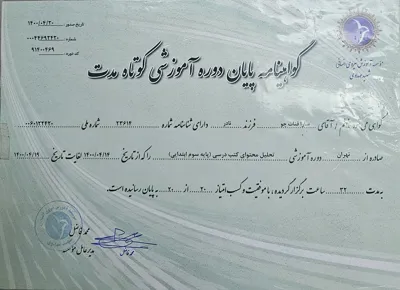 تاریخ صدور: ۱۴۰۰/۰۴/۲۰
شماره: ۰۰۰۴۴۶۹۲۴۲۰
کد دوره: ۹۱۴۰۰۴۶۹
گواهینامه پایان دوره آموزشی کوتاه مدت
گواهی می شود خانم / آقای فرزند نادر دارای شناسنامه شماره ۲۳۶۱۴ شماره ملی ۰۰۶۰۱۲۲۴۲۰
صادره از تهران دوره آموزشی تحلیل محتوای کتب درسی (پایه سوم ابتدایی) را که از تاریخ ۱۴۰۰/۰۴/۱۴ لغایت تاریخ ۱۴۰۰/۰۴/۱۹
بمدت ۳۲ ساعت برگزار گردیده، با موفقیت و کسب امتیاز ۲۰ از ۲۰ به پایان رسانیده است.
مدیرعامل موسسه